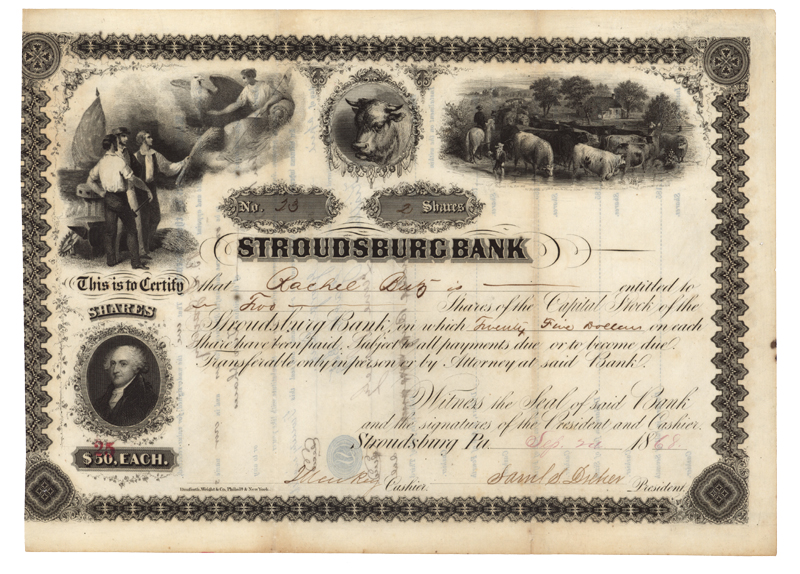 No. 33 2 Shares
STROUDSBURG BANK
This is to Certify that Rachel Butz is entitled to
Two Shares of the Capital Stock of the
SHARES
Stroudsburg Bank, on which Twenty Five Dollars on each
Share have been paid. Subject to all payments due or to become due.
Transferable only in person or by Attorney at said Bank.
Witness the Seal of said Bank
and the signatures of the President and Cashier.
Stroudsburg Pa. Sep. 1868
25
$50. EACH.
Cashier. Saml S Dreher President.